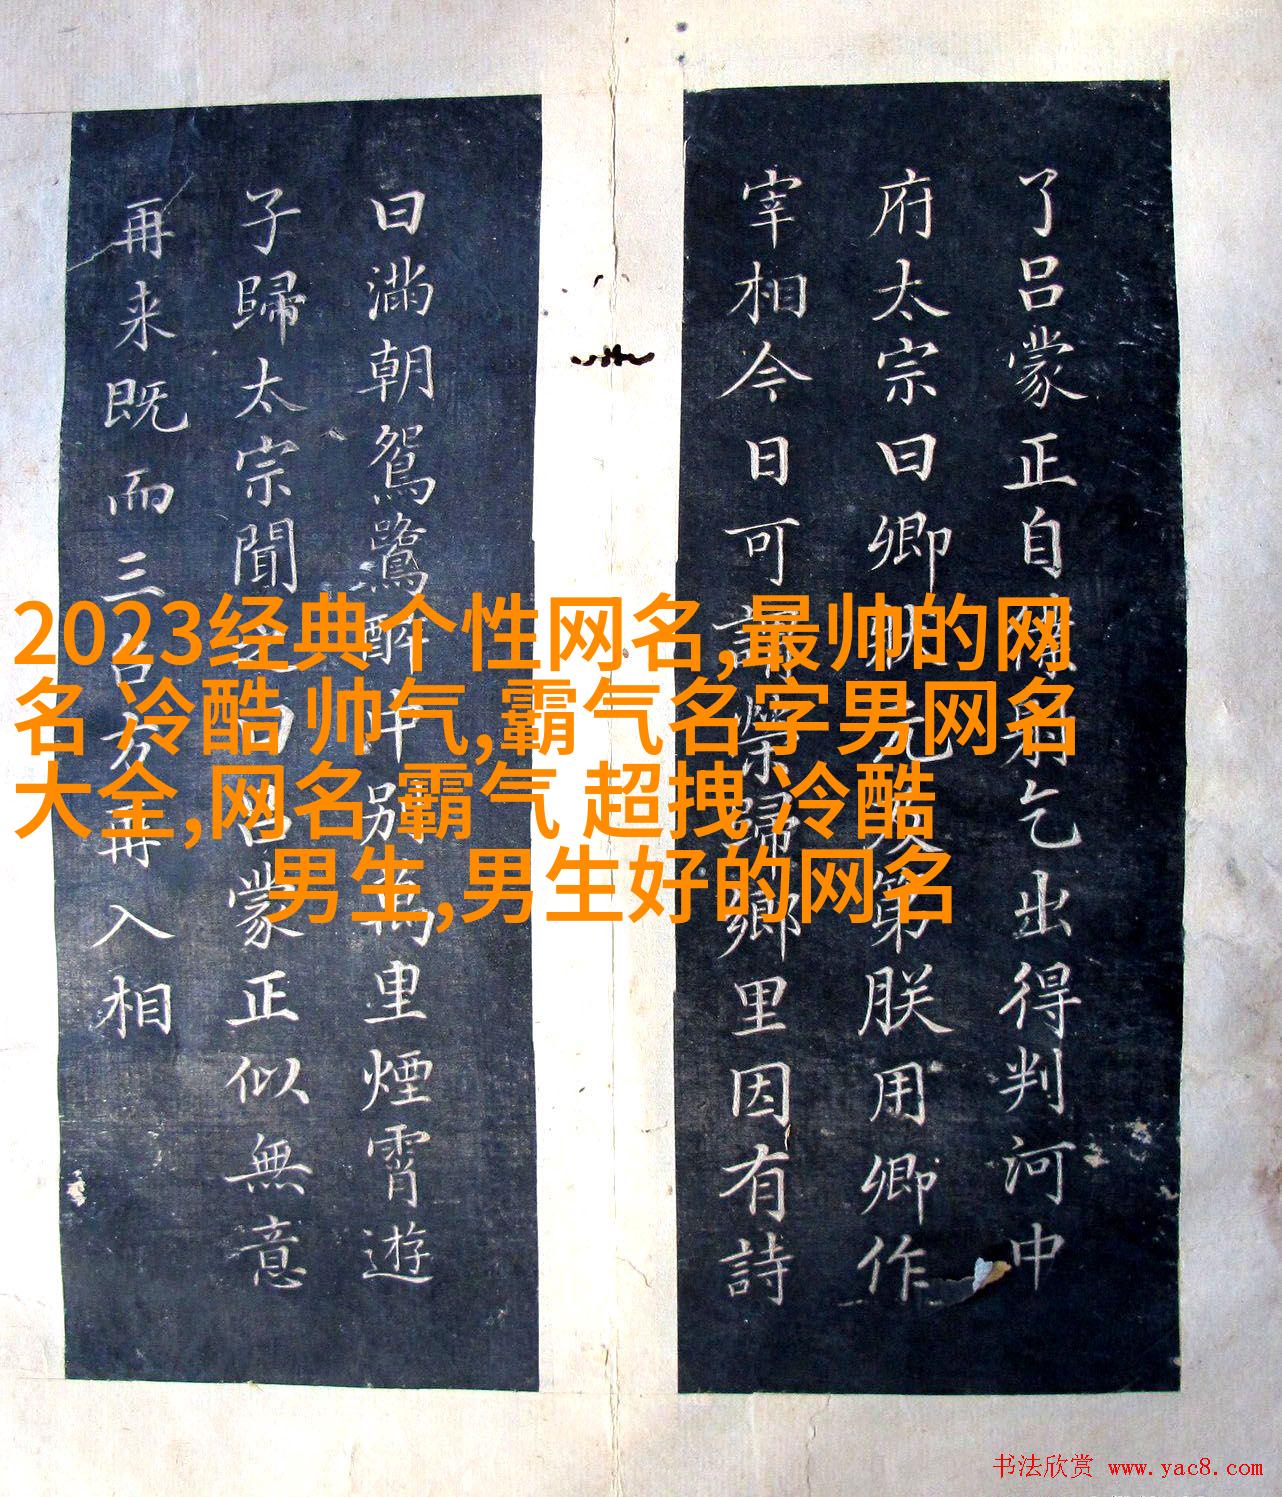 了吕蒙正自
乞出得判河中
府太宗曰卿
第朕用卿作
宰相今日可
歸鄉里因有詩
曰滿朝鴛鷺
里煙霄遊
子歸太宗聞
吕蒙正似無意
再来既而三台
再入相
2023经典个性网名,最帅的网
名 冷酷 帅气,霸气名字男网名
大全,网名 霸气 超拽 冷酷
男生,男生好的网名
书法欣赏 www.yac8.com